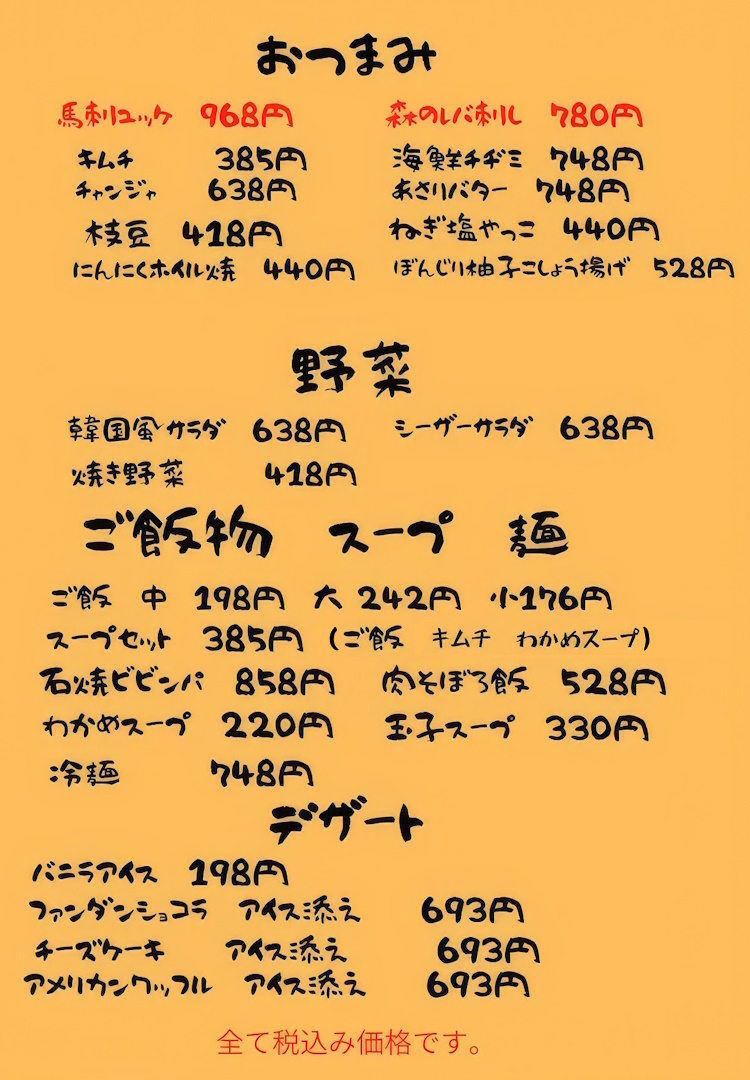 おつまみ
馬刺ユッケ 968円 森のレバ刺し 780円
キムチ 385円 海鮮チヂミ 748円
チャンジャ 638円 あさりバター 748円
枝豆 418円 ねぎ塩やっこ 440円
にんにくホイル焼 440円 ぼんじり柚子こしょう揚げ 528円
野菜
韓国風サラダ 638円 シーザーサラダ 638円
焼き野菜 418円
ご飯物 スープ 麺
ご飯 中 198円 大 242円 小176円
スープセット 385円 (ご飯 キムチ わかめスープ)
石焼ビビンバ 858円 肉そぼろ飯 528円
わかめスープ 220円 玉子スープ 330円
冷麺 748円
デザート
バニラアイス 198円
ファンダンショコラ アイス添え 693円
チーズケーキ アイス添え 693円
アメリカンワッフル アイス添え 693円
全て税込み価格です。